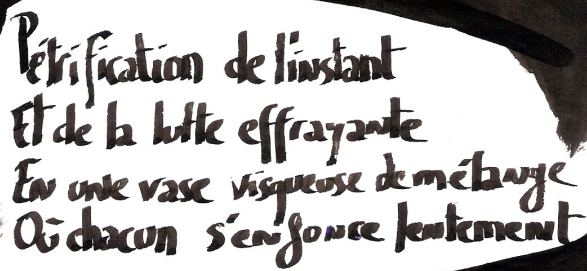 Pétrification de l'instant
Et de la lutte effrayante
En une vase visqueuse de mélange
Où chacun s'enfonce lentement